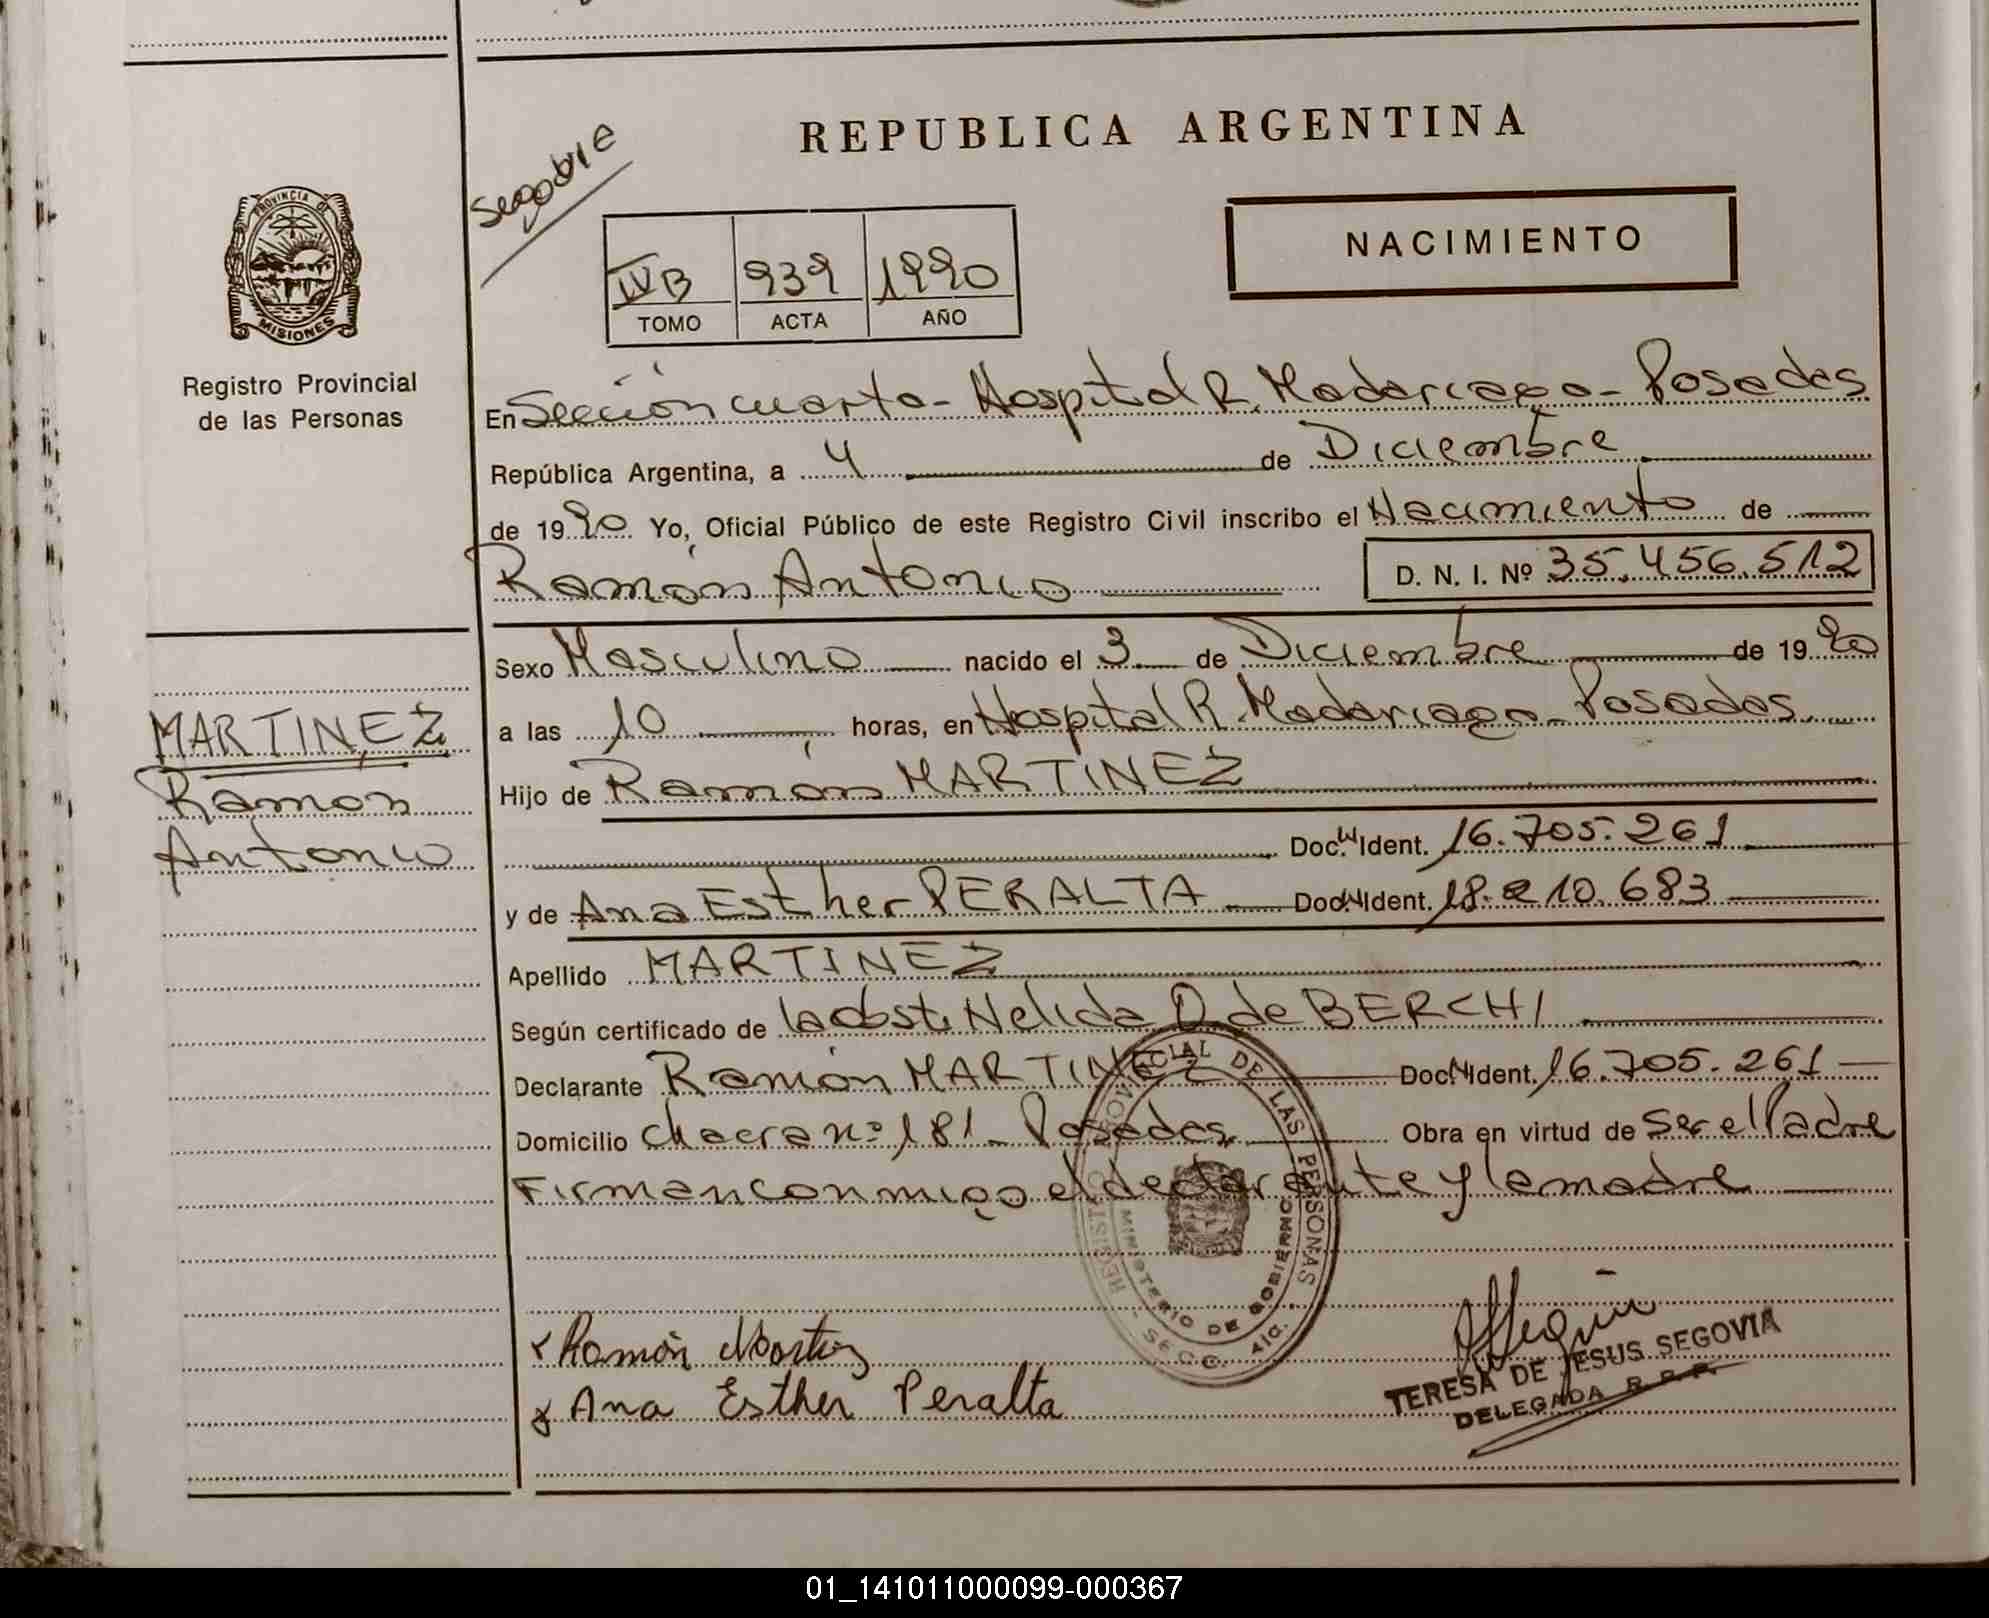 REPUBLICA ARGENTINA
NACIMIENTO
IVB 939 1990
TOMO ACTA AÑO
PROVINCIA DE
MISIONES
Registro Provincial
de las Personas
En Sección cuarta - Hospital R. Madariaga - Posadas
República Argentina, a 4 de Diciembre
de 1990 Yo, Oficial Público de este Registro Civil inscribo el Nacimiento de
Ramón Antonio D. N. I. Nº 35.456.512
Sexo Masculino nacido el 3 de Diciembre de 1990
a las 10 horas, en Hospital R. Madariaga - Posadas
Hijo de Ramón MARTINEZ
Doc. Ident. 16.705.261
y de Ana Esther PERALTA Doc. Ident. 18.210.683
Apellido MARTINEZ
Según certificado de la obst. Nelida O. de BERCHI
Declarante Ramón MARTINEZ Doc. Ident. 16.705.261
Domicilio chacra nº 181 - Posadas Obra en virtud de ser el Padre
Firman conmigo el declarante y la madre
MARTINEZ
Ramon
Antonio
REGISTRO PROVINCIAL DE LAS PERSONAS
MINISTERIO DE GOBIERNO
SECC. 4ta.
x Ramón Martinez
x Ana Esther Peralta
TERESA DE JESUS SEGOVIA
DELEGADA R. P. P.
01_141011000099-000367